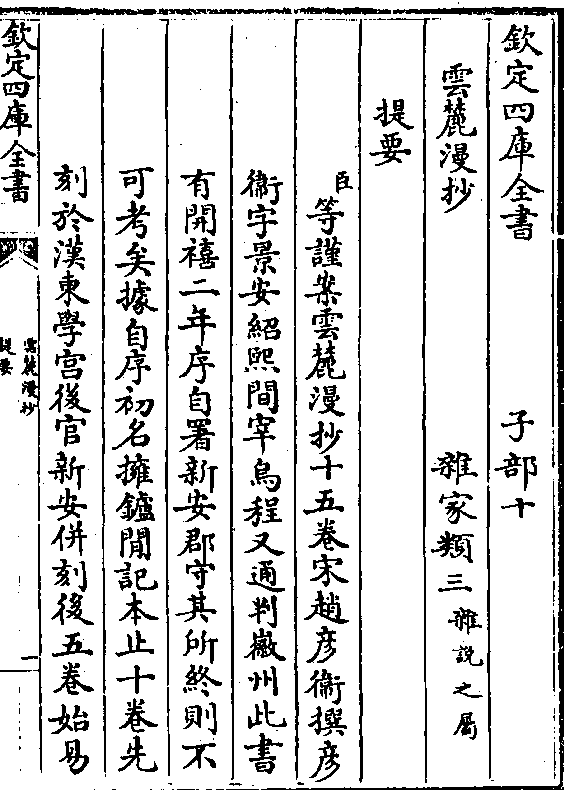 欽定四庫全書　子部十
雲麓漫抄　雜家類三雜說之屬
提要
臣等謹案雲麓漫抄十五卷宋趙彦衞撰彦
衞字景安紹熙間宰烏程又通判徽州此書
有開禧二年序自署新安郡守其所終則不
可考矣據自序初名擁鑪閒記本止十卷先
刻於漢東學宫後官新安併刻後五卷始易
欽定四庫全書
雲麓漫抄
提要
一